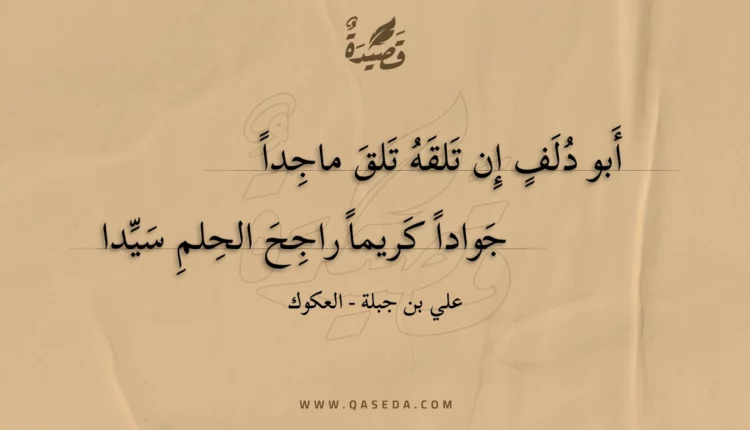 قَصِيْدَةٌ
أَبو دُلَفٍ إِن تَلقَهُ تَلقَ ماجِداً
جَواداً كَريماً راجِحَ الحِلمِ سَيِّدا
علي بن جبلة - العكوك
WWW.QASEDA.COM